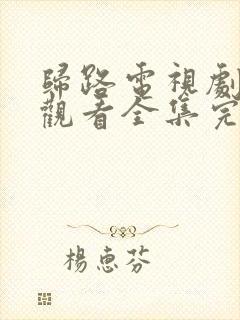 歸路電視劇
觀看全集完
楊惠芬